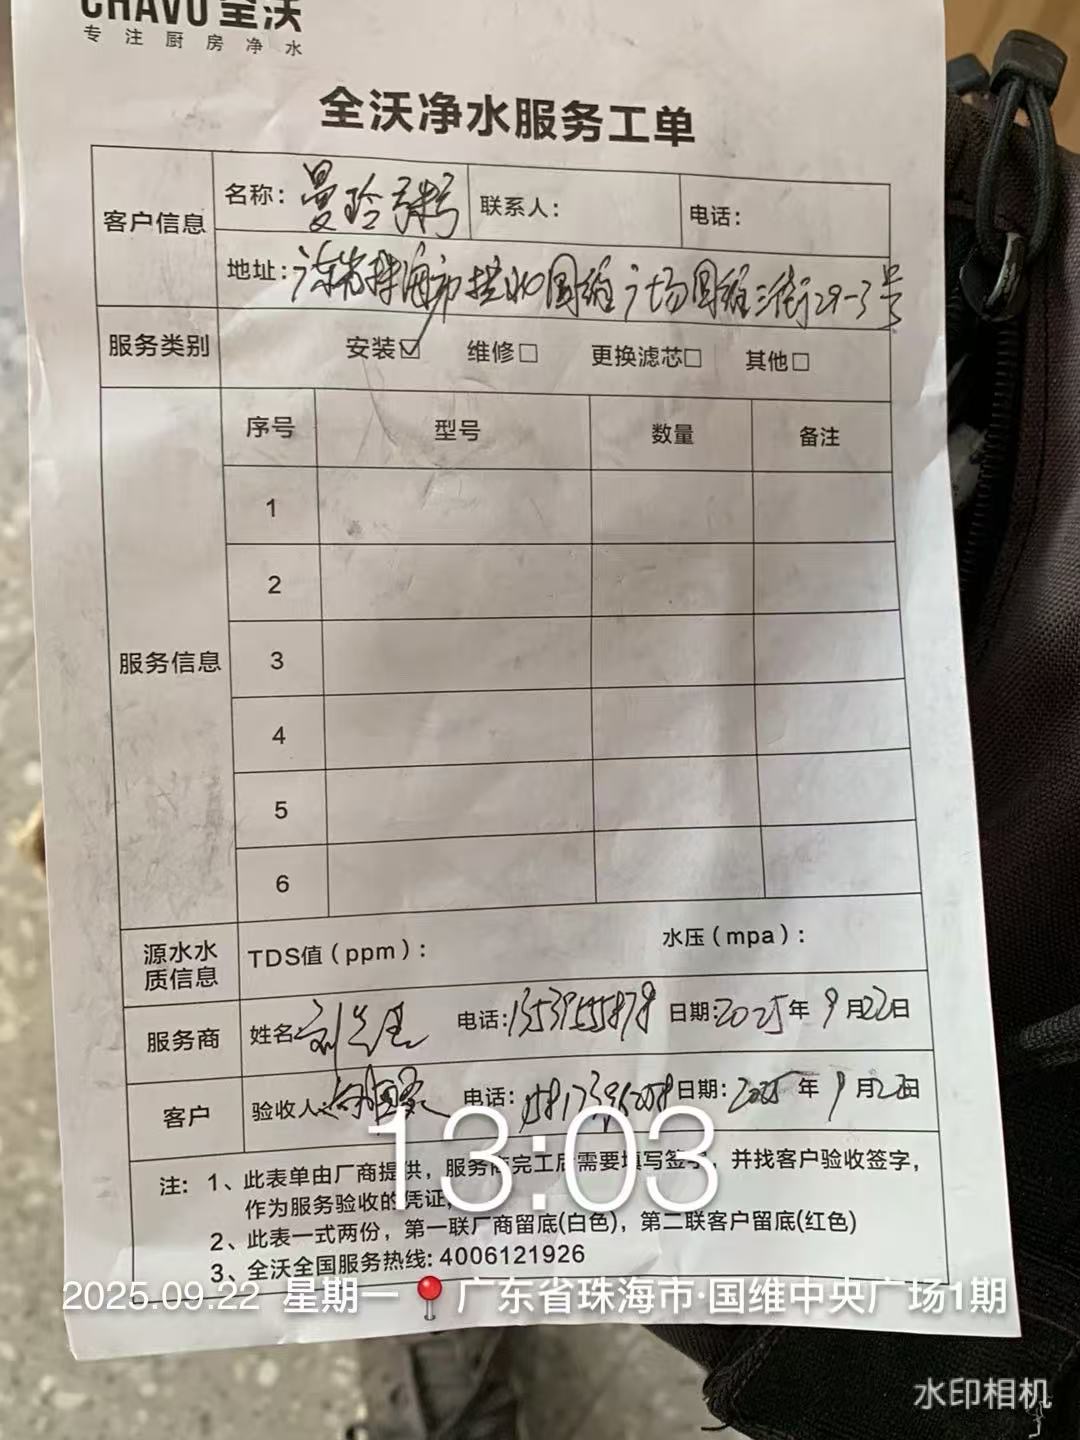 CHAVO 全沃
专注厨房净水
全沃净水服务工单
客户信息
名称：曼玲粥 联系人： 电话：
地址：广东省珠海市拱北国维广场国维三街29-3号
服务类别 安装☑ 维修□ 更换滤芯□ 其他□
服务信息
序号 型号 数量 备注
1
2
3
4
5
6
源水水质信息 TDS值（ppm）： 水压（mpa）：
服务商 姓名 电话: 日期:2025年9月22日
客户 验收人 电话： 日期：2025年9月22日
13:03
注： 1、此表单由厂商提供，服务商完工后需要填写签字，并找客户验收签字，
作为服务验收的凭证，
2、此表一式两份，第一联厂商留底(白色)，第二联客户留底(红色)
3、全沃全国服务热线: 4006121926
2025.09.22 星期一 广东省珠海市·国维中央广场1期
水印相机